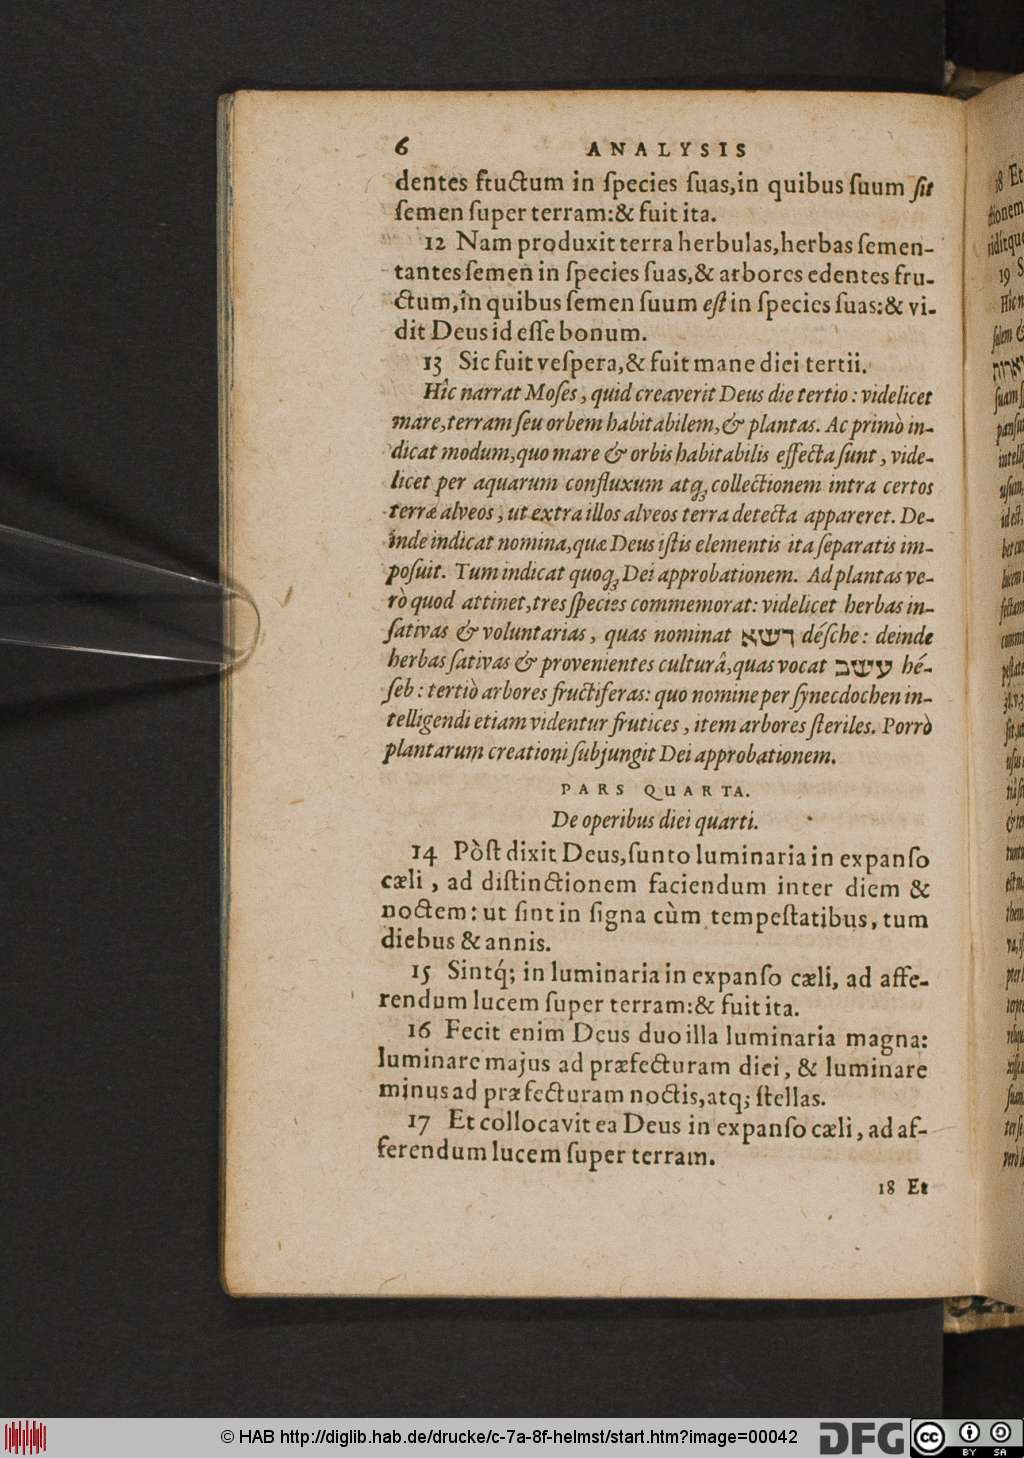 6 ANALYSIS
dentes fructum in ſpecies ſuas,in quibus ſuum ſit
ſemen ſuper terram:& fuit ita.
12 Nam produxit terra herbulas,herbas ſemen-
tantes ſemen in ſpecies ſuas,& arbores edentes fru-
ctum,in quibus ſemen ſuum eſt in ſpecies ſuas:& vi-
dit Deus id eſſe bonum.
13 Sic fuit veſpera,& fuit mane diei tertii.
Hîc narrat Moſes, quid creaverit Deus die tertio: videlicet
mare,terram ſeu orbem habitabilem,& plantas. Ac primò in-
dicat modum,quo mare & orbis habitabilis effecta ſunt, vide-
licet per aquarum confluxum atq; collectionem intra certos
terræ alveos, ut extra illos alveos terra detecta appareret. De-
inde indicat nomina,quæ Deus iſtis elementis ita ſeparatis im-
poſuit. Tum indicat quoq; Dei approbationem. Ad plantas ve-
rò quod attinet,tres ſpecies commemorat: videlicet herbas in-
ſativas & voluntarias, quas nominat דשא déſche: deinde
herbas ſativas & provenientes culturâ,quas vocat עשב hé-
ſeb: tertiò arbores fructiferas: quo nomine per ſynecdochen in-
telligendi etiam videntur frutices, item arbores ſteriles. Porrò
plantarum creationi ſubjungit Dei approbationem.
PARS QUARTA.
De operibus diei quarti.
14 Pòſt dixit Deus,ſunto luminaria in expanſo
cæli, ad diſtinctionem faciendum inter diem &
noctem: ut ſint in ſigna cùm tempeſtatibus, tum
diebus & annis.
15 Sintq́; in luminaria in expanſo cæli, ad affe-
rendum lucem ſuper terram:& fuit ita.
16 Fecit enim Deus duo illa luminaria magna:
luminare majus ad præfecturam diei, & luminare
minus ad præfecturam noctis,atq; ſtellas.
17 Et collocavit ea Deus in expanſo cæli, ad af-
ferendum lucem ſuper terram.
18 Et
© HAB http://diglib.hab.de/drucke/c-7a-8f-helmst/start.htm?image=00042
DFG
cc BY SA